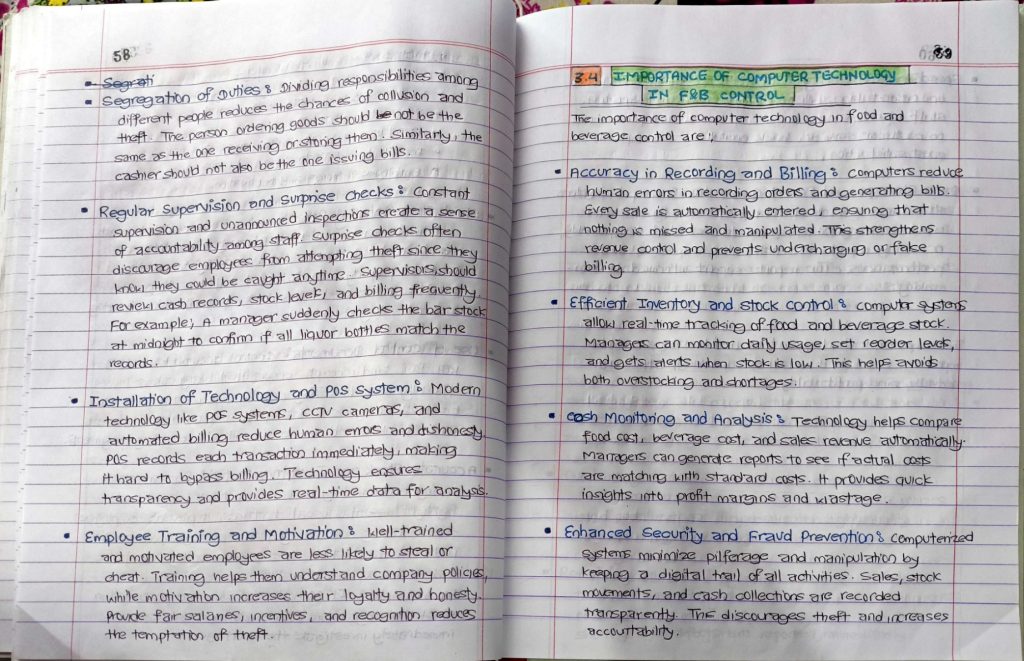 58
Segrati
Segregation of Duties : Dividing responsibilities among
different people reduces the chances of collusion and
theft. The person ordering goods should be not be the
same as the one receiving or storing them. Similarly, the
cashier should not also be the one issuing bills.
Regular Supervision and Surprise Checks : Constant
supervision and unannounced inspections create a sense
of accountability among staff. Surprise checks often
discourage employees from attempting theft since they
know they could be caught anytime. Supervisors, should
review cash records, stock levels, and billing frequently.
For example; A manager suddenly checks the bar stock
at midnight to confirm if all liquor bottles match the
records.
Installation of Technology and POS System : Modern
technology like POS systems, CCTV cameras, and
automated billing reduce human errors and dishonesty
POS records each transaction immediately, making
it hard to bypass billing. Technology ensures
transparency and provides real-time data for analysis.
Employee Training and Motivation : Well-trained
and motivated employees are less likely to steal or
cheat. Training helps them understand company policies,
while motivation increases their loyalty and honesty.
Provide fair salaries, incentives, and recognition reduces
the temptation of theft.
59
3.4 IMPORTANCE OF COMPUTER TECHNOLOGY
IN F&B CONTROL
The importance of computer technology in food and
beverage control are;
Accuracy in Recording and Billing : computers reduce
human errors in recording orders and generating bills.
Every sale is automatically entered, ensuring that
nothing is missed and manipulated. This strengthens
revenue control and prevents undercharging or false
billing
Efficient Inventory and Stock Control : computer systems
allow real-time tracking of food and beverage stock.
Managers can monitor daily usage, set reorder levels,
and gets alerts when stock is low. This helps avoids
both overstocking and shortages.
Cash Monitoring and Analysis : Technology helps compare
food cost, beverage cost, and sales revenue automatically.
Managers can generate reports to see if actual costs
are matching with standard costs. It provides quick
insights into profit margins and wastage.
Enhanced Security and Fraud Prevention : computerized
systems minimize pilferage and manipulation by
keeping a digital trail of all activities. Sales, stock
movements, and cash collections are recorded
transparently. This discourages theft and increases
accountability.